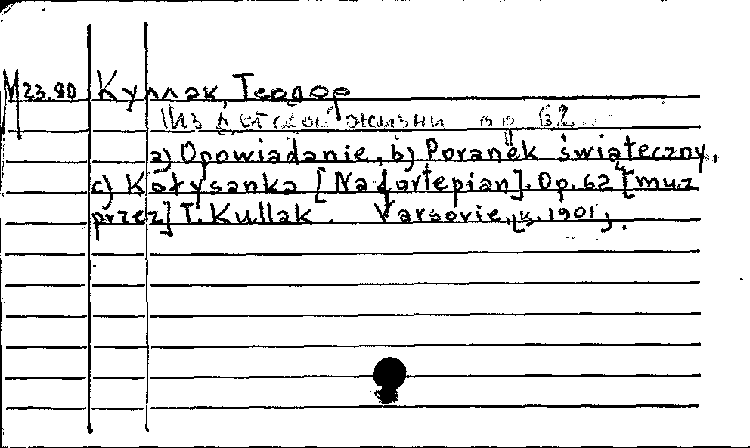 М 23.90 Куллак, Теодор
Из детской жизни ор 62
a) Opowiadanie, b) Poranek świąteczny,
c) Kołysanka [Na fortepian]. Op. 62 [muz
przez] T. Kullak. Varsovie, 1901,.